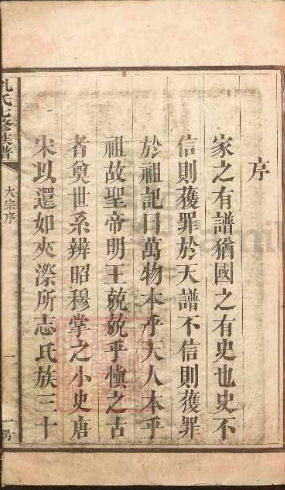 序
家之有譜猶國之有史也史不
信則獲罪於天譜不信則獲罪
於祖記曰萬物本乎天人本乎
祖故聖帝明王兢兢乎慎之古
者奠世系辨昭穆掌之小史唐
宋以還如夾漈所志氏族三十
孔氏七修族譜
大宗序
一